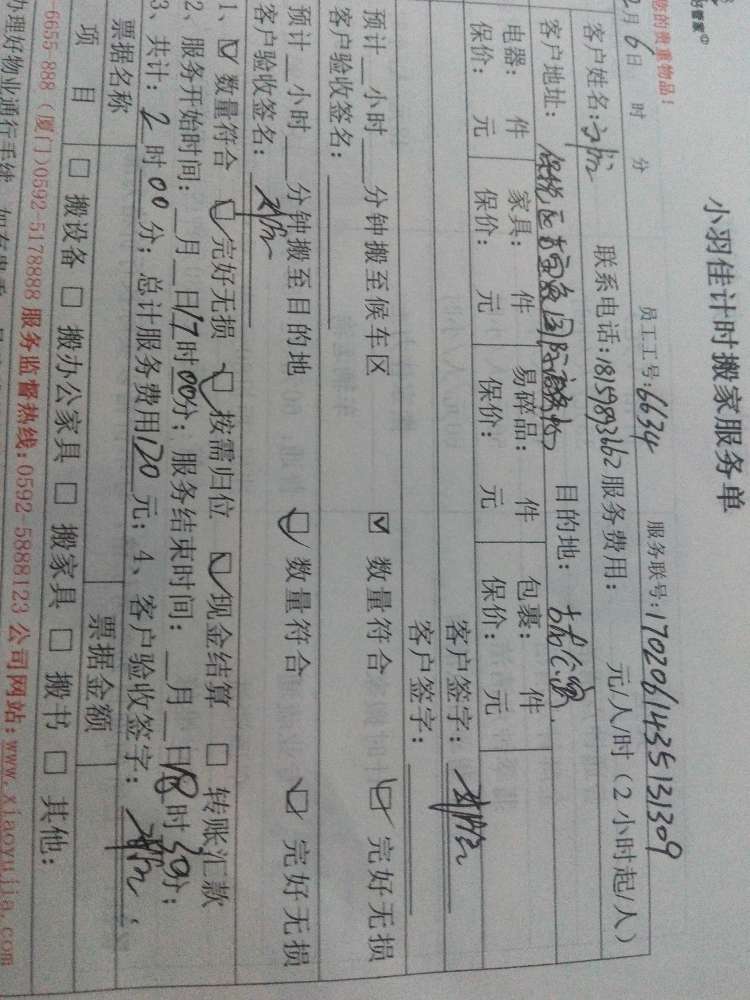 小羽佳计时搬家服务单
管家
您的贵重物品!
员工工号:6634 服务联号:1702061435131309
2月6日 时 分
客户姓名: 联系电话:18159893662 服务费用: 元/人/时(2小时起/人)
客户地址: 目的地:
电器: 件 家具: 件 易碎品: 件 包裹: 件
保价: 元 保价: 元 保价: 元 保价: 元
客户签字:
客户签字:
预计__小时___分钟搬至候车区 ☑ 数量符合 ☑ 完好无损
客户验收签名:
预计__小时___分钟搬至目的地 ☑ 数量符合 ☑ 完好无损
客户验收签名:
1、☑ 数量符合 ☑ 完好无损 ☑ 按需归位 ☑ 现金结算 □ 转账汇款
2、服务开始时间:__月__日17时00分; 服务结束时间:__月__日18时30分;
3、共计: 2时00分; 总计服务费用120元; 4、客户验收签字:
票据名称 票据金额
项 目 □ 搬设备 □ 搬办公家具 □ 搬家具 □ 搬书 □ 其他:
-6655 888 (厦门)0592-5178888 服务监督热线:0592-5888123 公司网站:www.xiaoyujia.com
办理好物业通行手续